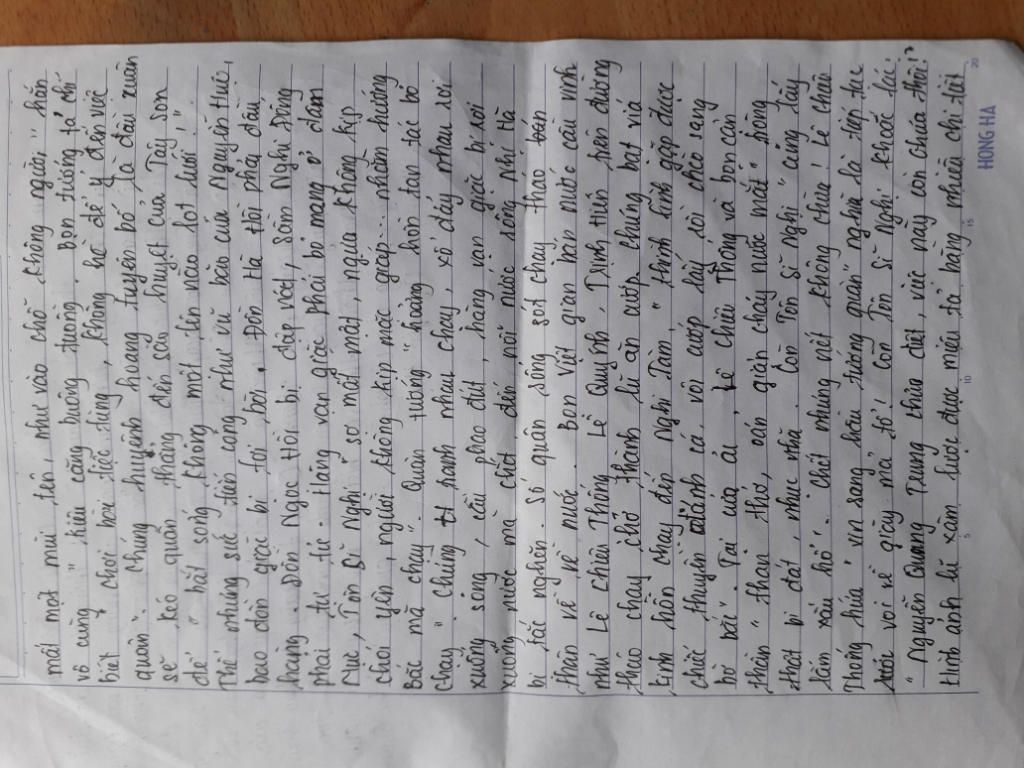 mất một mũi tên, như vào chỗ không người" hắn
vô cùng "kiêu căng buông tuồng. Bọn tướng tá chỉ
biết chơi bời tiệc tùng, không hề để ý đến việc
quân". Chúng huyênh hoang tuyên bố là đầu xuân
sẽ kéo quân thẳng đến sào huyệt của Tây Sơn
để "bắt sống không một tên nào lọt lưới!"
Thế nhưng sức tiến công như vũ bão của Nguyễn Huệ,
bao đồn giặc bị tơi bời. Đồn Hà Hồi phải đầu
hàng. Đồn Ngọc Hồi bị dập nát, Sầm Nghi Đống
phải tự tử. Hàng vạn giặc phải bỏ mạng ở đầm
Mực, Tôn Sĩ Nghị "sợ mất mật, ngựa không kịp
chối yên, người không kịp mặc giáp... nhằm hướng
Bắc mà chạy". Quan tướng "hoảng hồn tan tác bỏ
chạy" chúng tranh nhau chạy, xô đẩy nhau rơi
xuống sông, cầu phao đứt, hàng vạn giặc bị rơi
xuống nước mà chết đến nỗi nước sông Nhị Hà
bị tắc nghẽn. Số quân sống sót chạy tháo trốn
thân về về nước. Bọn Việt gian bán nước cầu vinh
như Lê Chiêu Thống, Lê Quýnh, Trịnh Hiến trên đường
tháo chạy chở thành lũ ăn cướp. Chúng bạt vía
kinh hồn chạy đến Nghi Tàm, "thình lình gặp được
chiếc thuyền đánh cá, vội cướp lấy rồi chèo sang
bờ bắc". Tại cửa ải, Lê Chiêu Thống và bọn cận
thần "than thở, oán giận chảy nước mắt" trông
thật bi đát, nhục nhã. Còn Tôn Sĩ Nghị "cũng lấy
làm xấu hổ". Chết nhưng nết không chừa! Lê Chiêu
Thống hứa "xin sang hầu tướng quân" nghĩa là tiếp tục
với voi về giày mả tổ! Còn Tôn Sĩ Nghị khoác lác:
"Nguyễn Quang Trung chưa diệt, việc này còn chưa thôi!"
Hình ảnh lũ xâm lược được miêu tả bằng nhiều chi tiết
5
10
15
20
HONG HA